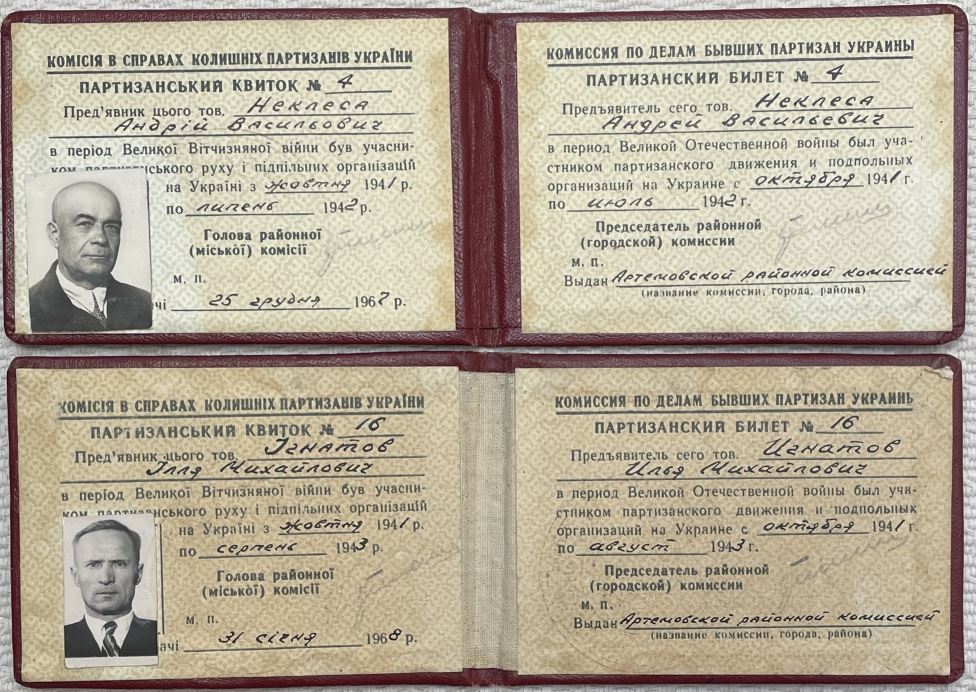 КОМІСІЯ В СПРАВАХ КОЛИШНІХ ПАРТИЗАНІВ УКРАЇНИ
ПАРТИЗАНСЬКИЙ КВИТОК № 4
Пред'явник цього тов. Неклеса
Андрій Васильович
в період Великої Вітчизняної війни був учасни-
ком партизанського руху і підпільних організацій
на Україні з жовтня 1941 р.
по липень 1942 р.
Голова районної
(міської) комісії
м. п.
чі 25 грудня 1967 р.
КОМИССИЯ ПО ДЕЛАМ БЫВШИХ ПАРТИЗАН УКРАИНЫ
ПАРТИЗАНСКИЙ БИЛЕТ № 4
Предъявитель сего тов. Неклеса
Андрей Васильевич
в период Великой Отечественной войны был уча-
стником партизанского движения и подпольных
организаций на Украине с октября 1941 г.
по июль 1942 г.
Председатель районной
(городской) комиссии
м. п.
Выдан Артемовской районной комиссией
(название комиссии, города, района)
КОМІСІЯ В СПРАВАХ КОЛИШНІХ ПАРТИЗАНІВ УКРАЇНИ
ПАРТИЗАНСЬКИЙ КВИТОК № 16
Пред'явник цього тов. Ігнатов
Ілля Михайлович
в період Великої Вітчизняної війни був учасни-
ком партизанського руху і підпільних організацій
на Україні з жовтня 1941 р.
по серпень 1943 р.
Голова районної
(міської) комісії
м. п.
ачі 31 січня 1968 р.
КОМИССИЯ ПО ДЕЛАМ БЫВШИХ ПАРТИЗАН УКРАИНЫ
ПАРТИЗАНСКИЙ БИЛЕТ № 16
Предъявитель сего тов. Игнатов
Илья Михайлович
в период Великой Отечественной войны был уча-
стником партизанского движения и подпольных
организаций на Украине с октября 1941 г.
по август 1943 г.
Председатель районной
(городской) комиссии
м. п.
Выдан Артемовской районной комиссией
(название комиссии, города, района)